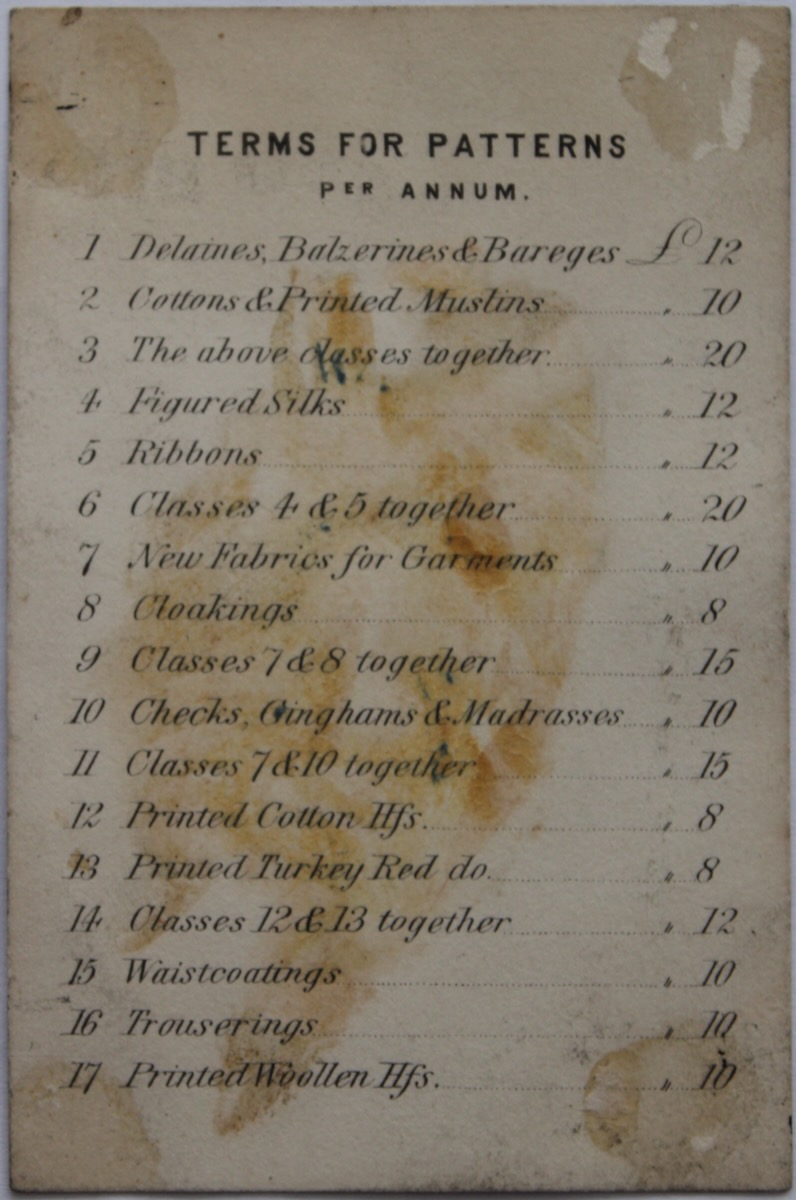 TERMS FOR PATTERNS
PER ANNUM.
1 Delaines, Balzerines & Bareges £ 12
2 Cottons & Printed Muslins " 10
3 The above classes together " 20
4 Figured Silks " 12
5 Ribbons " 12
6 Classes 4 & 5 together " 20
7 New Fabrics for Garments " 10
8 Cloakings " 8
9 Classes 7 & 8 together " 15
10 Checks, Ginghams & Madrasses " 10
11 Classes 7 & 10 together " 15
12 Printed Cotton Hfs. " 8
13 Printed Turkey Red do. " 8
14 Classes 12 & 13 together " 12
15 Waistcoatings " 10
16 Trouserings " 10
17 Printed Woollen Hfs. " 10